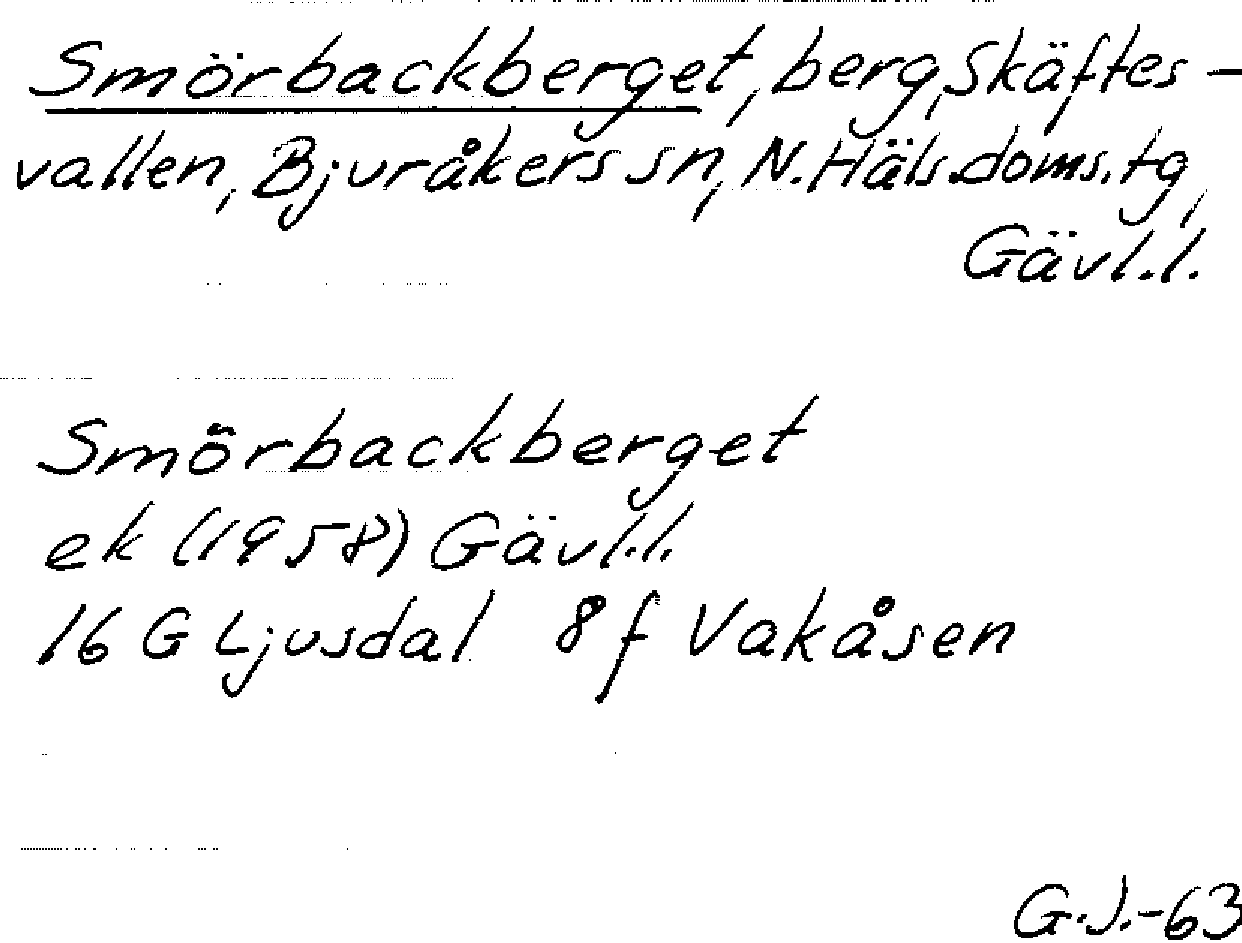 Smörbackberget, berg, Skäftes-
vallen, Bjuråkers sn, N. Häls. doms. tg,
Gävl.l.
Smörbackberget
ek (1958) Gävl.l.
16 G Ljusdal 8 f Vakåsen
G.J.-63